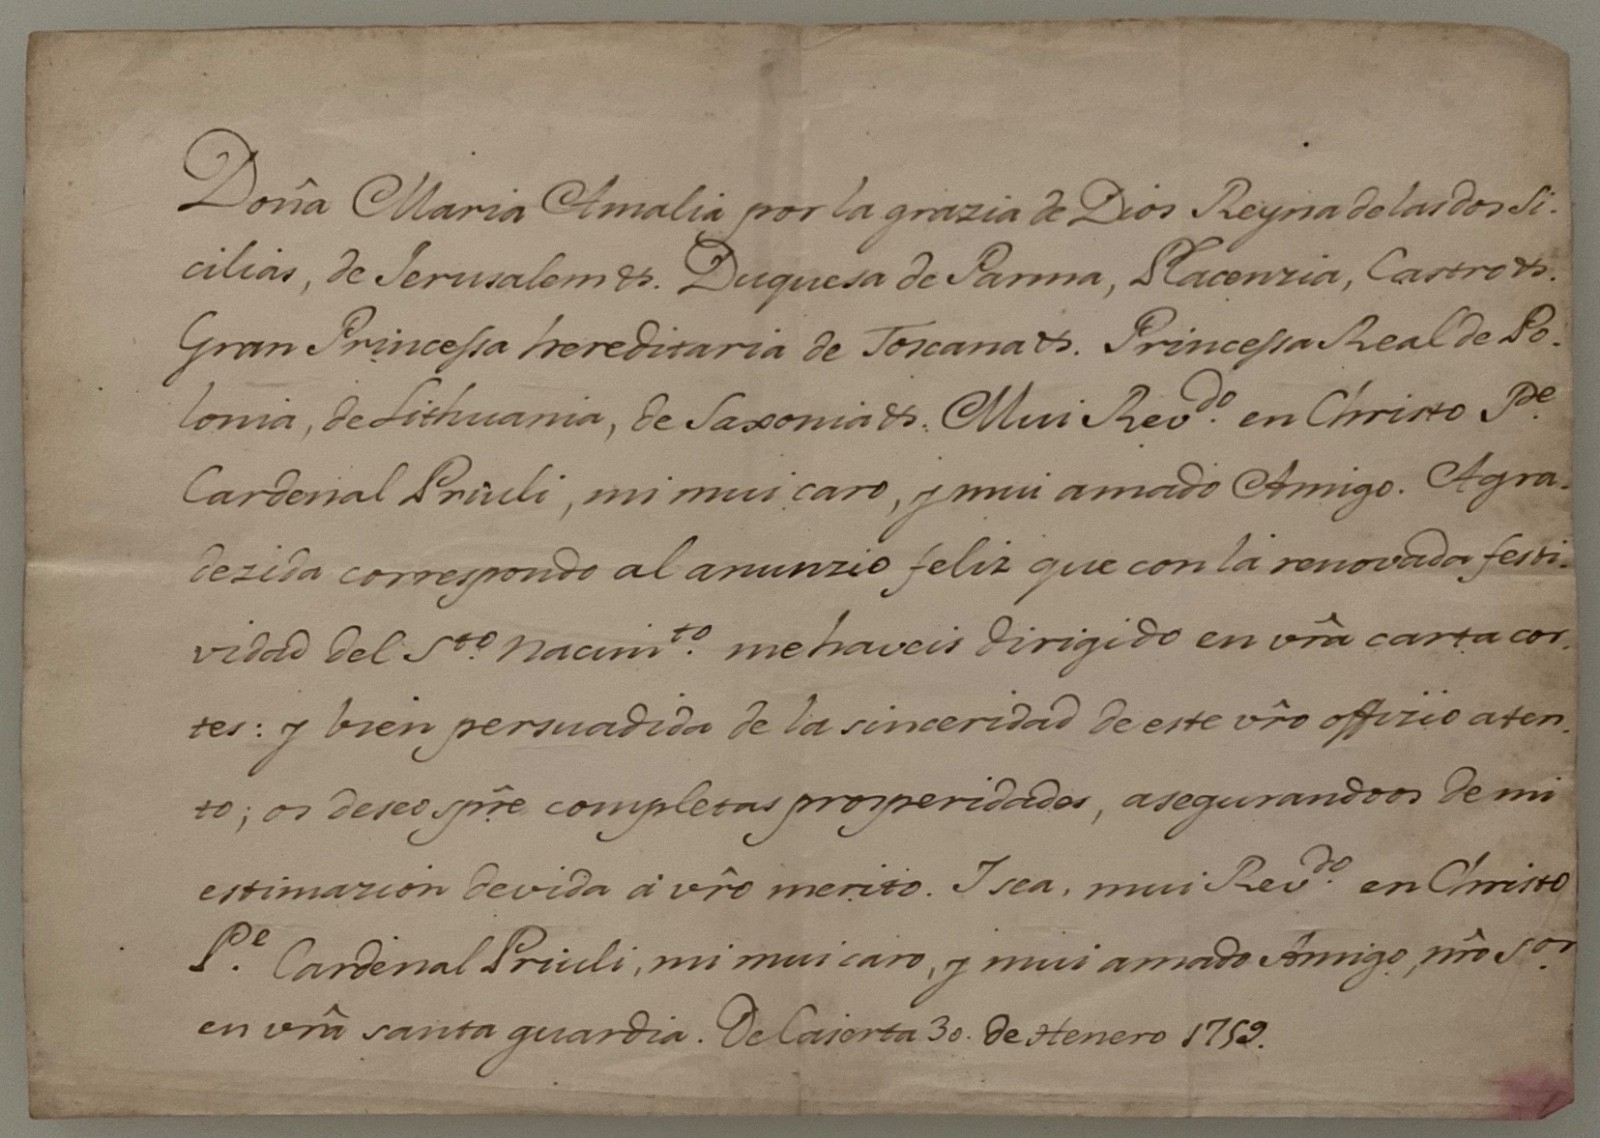 Doña Maria Amalia por la grazia de Dios Reyna de las dos Si-
cilias, de Jerusalem &. Duquesa de Parma, Placenzia, Castro &.
Gran Princessa hereditaria de Toscana &. Princessa Real de Po-
lonia, de Lithuania, de Saxonia &. Mui Rev.do en Christo P.e
Cardenal Priuli, mi mui caro, y mui amado Amigo. Agra-
dezida correspondo al anunzio feliz que con la renovada festi-
vidad del S.to Nacim.to me haveis dirigido en vr̃a carta cor-
tes: y bien persuadida de la sinceridad de este vr̃o offizio aten-
to; os deseo spr̃e completas prosperidades, asegurandoos de mi
estimazion devida à vr̃o merito. I sea, mui Rev.do en Christo
P.e Cardenal Priuli, mi mui caro, y mui amado Amigo, nr̃o S.or
en vr̃a santa guardia. De Caserta 30. de Henero 1759.